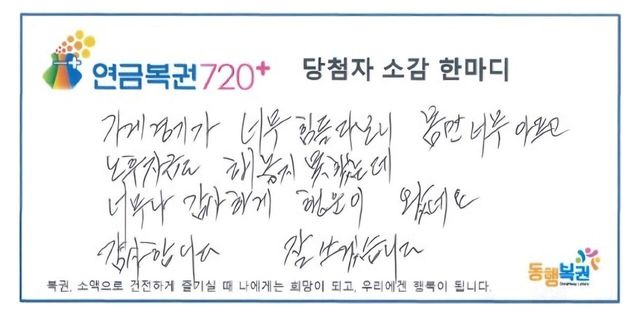 연금복권720+ 당첨자 소감 한마디
가게 경기가 너무 힘들다보니 몸만 너무 아프고
노후자치도 해놓지 못했는데
너무나 감사하게 행운이 왔네요
감사합니다 잘 쓰겠습니다
복권, 소액으로 건전하게 즐기실 때 나에게는 희망이 되고, 우리에겐 행복이 됩니다.
동행복권